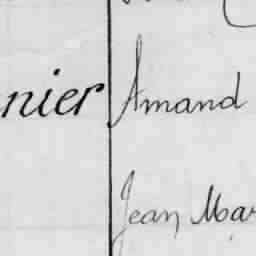 nier Amand
Jean Mar